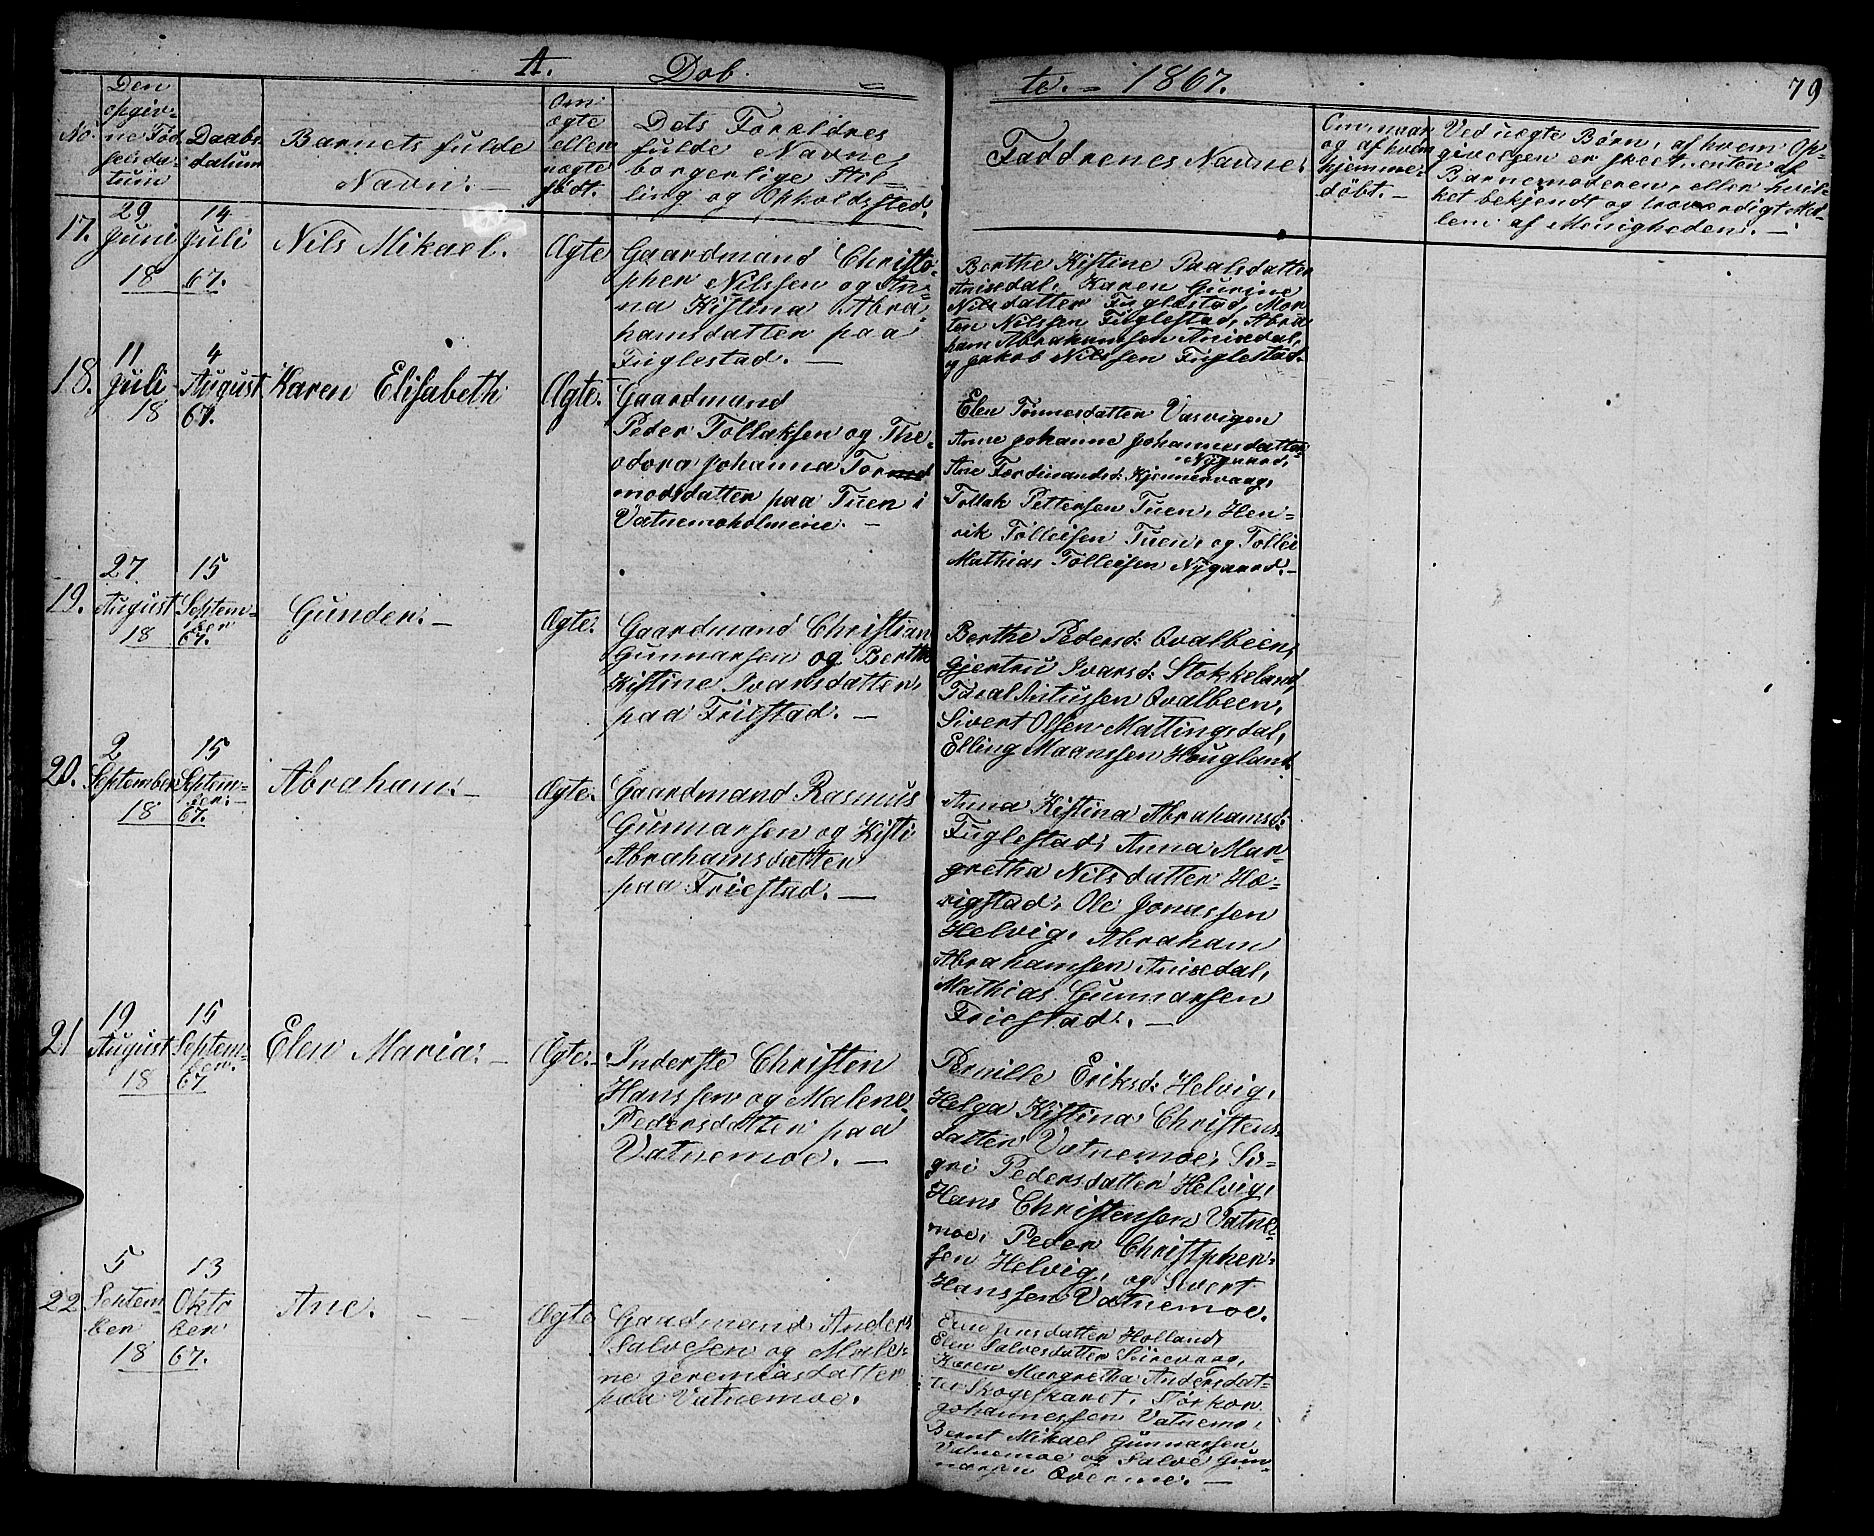 A. Døb-
te. - 1867.
79
No.
Den
opgiv-
ne Fød
selsda-
tum
Daabs
datum
Barnets fulde
Navn. -
Om
ægte
eller
uægte
født.
Dets Forældres
fulde Navne,
borgerlige Stil-
ling og Opholdssted.
Faddrenes Navne.
Om, naar
og af hvem
hjemme-
døbt. -
Ved uægte Børn, af hvem Op-
givelsen er skeet, enten af
Barnemoderen, eller hvil-
ket bekjendt og troværdigt Med-
lem af Menigheden. -
17.
29
Juni
18
14
Juli
67.
Nils Mikael.
Ægte
Gaardmand Christo-
pher Nilssen og An-
na Kistina Abra-
hamsdatter paa
Fuglestad. -
Berthe Kistine Paalsdatter
Anisdal, Karen Gurine
Nilsdatter Fuglestad, Mor-
ten Nilssen Fuglestad, Abra
ham Abrahamsen Anisdal,
og Jakob Nilssen Fuglestad.
18.
11
Juli
18
4
August
67.
Karen Elisabeth
Ægte.
Gaardmand
Peder Tollaksen og The-
odora Johanna Tor
modsdatter paa Tuen i
Vatnemoholmene. -
Elen Tønnesdatter Vasvigen
Anne Johanne Johannesdatter
Nygaard,
Ane Ferdinandsd: Kjennervaag,
Tollak Pettersen Tuen, Hen-
rik Tolleisen Tuen, og Tollei
Mathias Tolleisen Nygaard. -
19.
27
August
18
15
Septem-
ber
67.
Gunder. -
Ægte.
Gaardmand Christian
Gunnarsen og Berthe
Kistine Ivarsdatter,
paa Friestad. -
Berthe Pedersd: Qvalbeen,
Gjertru Ivarsd: Stokkeland,
Qvalbeen,
Sivert Olsen Mattingsdal,
Elling Maanssen Hougland.
20.
2
September
18
15
Septem-
ber. -
67.
Abraham. -
Ægte.
Gaardmand Rasmus
Gunnarsen og Kisti
Abrahamsdatter
paa Friestad. -
Anna Kistina Abrahamsd:
Fuglestad, Anna Mar-
gretha Nilsdatter Hæ-
rigstad, Ole Jonassen
Helvig, Abraham
Abrahamsen Anisdal,
Mathias Gunnarsen
Friestad. -
21
19
August
18
15
Septem-
ber.
67
Elen Maria. -
Ægte.
Inderste Christen
Hanssen og Malene
Pedersdatter paa
Vatnemoe. -
Pernille Eriksd: Helvig,
Helga Kistina Christens-
datter Vatnemoe, Si-
gri Pedersdatter Helvig,
Hans Christensen Vatne-
moe, Peder Christphen-
sen Helvig, og Sivert
Hanssen Vatnemoe.
22
5
Septem
ber
18
13
Okto
ber
67.
Ane. - -
Ægte
Gaardmand Anders
Salvesen og Male-
ne Jeremiasdatter
paa Vatnemoe.
Holland,
Elen Salvesdatter Sirevaag,
Karen Margretha Andersdat-
ter Skogeskaret, Størkor
Johannessen Vatnemo,
Bernt Mikael Gunnarsen
Vatnemoe og Salve Gun-
narsen Qverme. -